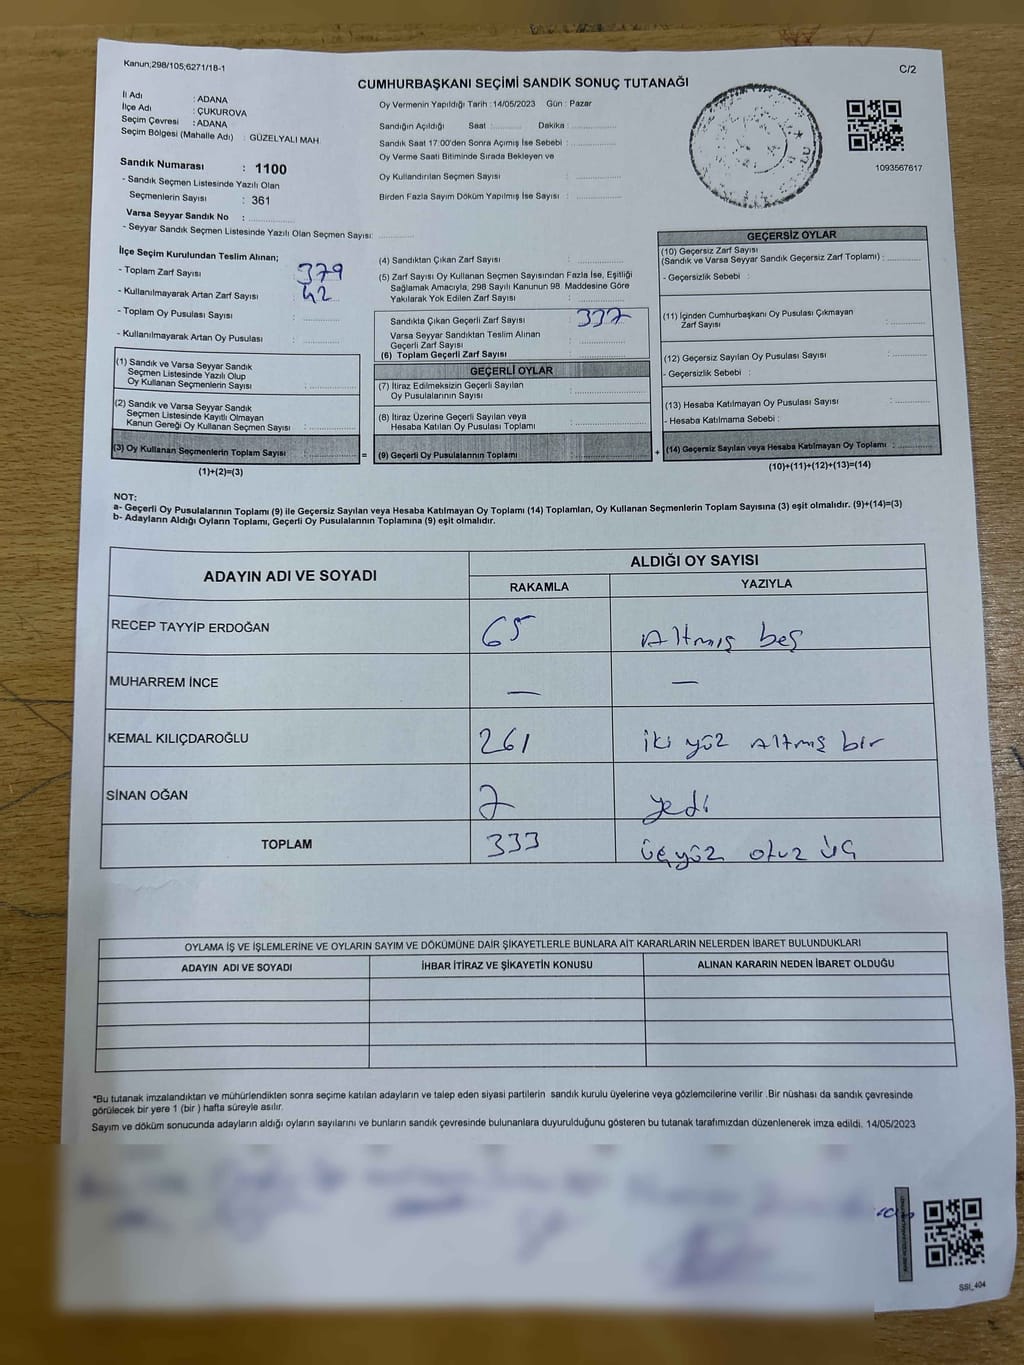 Kanun;298/105;6271/18-1
C/2
CUMHURBAŞKANI SEÇİMİ SANDIK SONUÇ TUTANAĞI
İl Adı : ADANA
İlçe Adı : ÇUKUROVA
Seçim Çevresi : ADANA
Seçim Bölgesi (Mahalle Adı) : GÜZELYALI MAH
Sandık Numarası : 1100
- Sandık Seçmen Listesinde Yazılı Olan
Seçmenlerin Sayısı : 361
Varsa Seyyar Sandık No :
- Seyyar Sandık Seçmen Listesinde Yazılı Olan Seçmen Sayısı:
Oy Vermenin Yapıldığı Tarih : 14/05/2023 Gün : Pazar
Sandığın Açıldığı Saat : Dakika :
Sandık Saat 17:00'den Sonra Açımış İse Sebebi :
Oy Verme Saati Bitiminde Sırada Bekleyen ve
Oy Kullandırılan Seçmen Sayısı :
Birden Fazla Sayım Döküm Yapılmış İse Sayısı :
1093567617
İlçe Seçim Kurulundan Teslim Alınan;
- Toplam Zarf Sayısı : 379
- Kullanılmayarak Artan Zarf Sayısı : 42
- Toplam Oy Pusulası Sayısı :
- Kullanılmayarak Artan Oy Pusulası :
(1) Sandık ve Varsa Seyyar Sandık
Seçmen Listesinde Yazılı Olup
Oy Kullanan Seçmenlerin Sayısı :
(2) Sandık ve Varsa Seyyar Sandık
Seçmen Listesinde Kayıtlı Olmayan
Kanun Gereği Oy Kullanan Seçmen Sayısı :
(3) Oy Kullanan Seçmenlerin Toplam Sayısı :
(1)+(2)=(3)
(4) Sandıktan Çıkan Zarf Sayısı :
(5) Zarf Sayısı Oy Kullanan Seçmen Sayısından Fazla İse, Eşitliği
Sağlamak Amacıyla, 298 Sayılı Kanunun 98. Maddesine Göre
Yakılarak Yok Edilen Zarf Sayısı :
Sandıkta Çıkan Geçerli Zarf Sayısı : 337
Varsa Seyyar Sandıktan Teslim Alınan
Geçerli Zarf Sayısı :
(6) Toplam Geçerli Zarf Sayısı :
GEÇERLİ OYLAR
(7) İtiraz Edilmeksizin Geçerli Sayılan
Oy Pusulalarının Sayısı :
(8) İtiraz Üzerine Geçerli Sayılan veya
Hesaba Katılan Oy Pusulası Toplamı :
= (9) Geçerli Oy Pusulalarının Toplamı :
GEÇERSİZ OYLAR
(10) Geçersiz Zarf Sayısı
(Sandık ve Varsa Seyyar Sandık Geçersiz Zarf Toplamı) :
- Geçersizlik Sebebi :
(11) İçinden Cumhurbaşkanı Oy Pusulası Çıkmayan
Zarf Sayısı :
(12) Geçersiz Sayılan Oy Pusulası Sayısı :
- Geçersizlik Sebebi :
(13) Hesaba Katılmayan Oy Pusulası Sayısı :
- Hesaba Katılmama Sebebi :
+ (14) Geçersiz Sayılan veya Hesaba Katılmayan Oy Toplamı :
(10)+(11)+(12)+(13)=(14)
NOT:
a- Geçerli Oy Pusulalarının Toplamı (9) ile Geçersiz Sayılan veya Hesaba Katılmayan Oy Toplamı (14) Toplamları, Oy Kullanan Seçmenlerin Toplam Sayısına (3) eşit olmalıdır. (9)+(14)=(3)
b- Adayların Aldığı Oyların Toplamı, Geçerli Oy Pusulalarının Toplamına (9) eşit olmalıdır.
ADAYIN ADI VE SOYADI ALDIĞI OY SAYISI
RAKAMLA YAZIYLA
RECEP TAYYİP ERDOĞAN 65 Altmış beş
MUHARREM İNCE — —
KEMAL KILIÇDAROĞLU 261 iki yüz Altmış bir
SİNAN OĞAN 7 yedi
TOPLAM 333 üçyüz otuz üç
OYLAMA İŞ VE İŞLEMLERİNE VE OYLARIN SAYIM VE DÖKÜMÜNE DAİR ŞİKAYETLERLE BUNLARA AİT KARARLARIN NELERDEN İBARET BULUNDUKLARI
ADAYIN ADI VE SOYADI İHBAR İTİRAZ VE ŞİKAYETİN KONUSU ALINAN KARARIN NEDEN İBARET OLDUĞU
*Bu tutanak imzalandıktan ve mühürlendikten sonra seçime katılan adayların ve talep eden siyasi partilerin sandık kurulu üyelerine veya gözlemcilerine verilir .Bir nüshası da sandık çevresinde
görülecek bir yere 1 (bir ) hafta süreyle asılır.
Sayım ve döküm sonucunda adayların aldığı oyların sayılarını ve bunların sandık çevresinde bulunanlara duyurulduğunu gösteren bu tutanak tarafımızdan düzenlenerek imza edildi. 14/05/2023
SSI_404